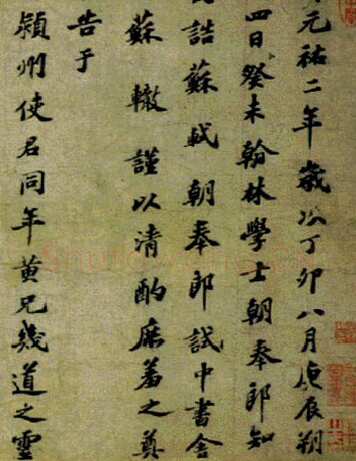 元祐二年歲次丁卯八月庚辰朔
四日癸未翰林學士朝奉郎知
誥蘇軾朝奉郎試中書舍
蘇轍謹以清酌庶羞之奠
告于
潁州使君同年黃兄幾道之靈